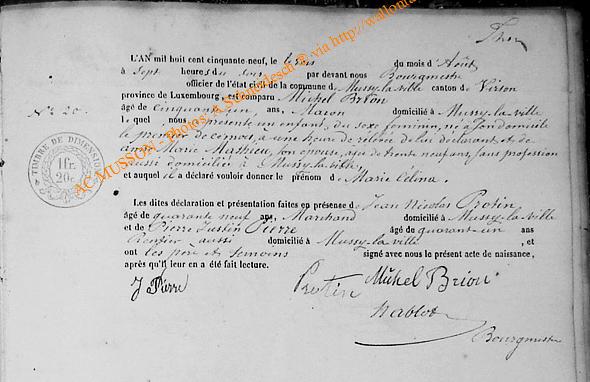 L'AN mil huit cent cinquante neuf, le trois du mois d'Août
à sept heures du soir par devant nous Bourgmestre
officier de l'état civil de la commune de Mussy-la-ville canton de Virton
province de Luxembourg, est comparu Michel Brion
N° 20. âgé de Cinquante un ans, Maçon domicilié à Mussy-la-ville
lequel nous a présenté un enfant, du sexe féminin, né à son domicile
le premier de ce mois, à une heure de relevée de lui déclarant et de
anne Marie Mathieu, son épouse, agée de trente neuf ans, sans profession
aussi domiciliée à Mussy-la-ville,
et auquel il a déclaré vouloir donner le prénom de Marie Célina.
TIMBRE DE DIMENSION
1 fr.
20 c.
Les dites déclaration et présentation faites en présence de Jean Nicolas Protin
âgé de quarante neuf ans, Marchand domicilié à Mussy-la-ville
et de Pierre Justin Pierre âgé de quarante-un ans
Rentier aussi domicilié à Mussy-la-ville, et
ont les père et témoins signé avec nous le présent acte de naissance,
après qu'il leur en a été fait lecture.
J Pierre Protin Michel Brion
Nablot
Bourgmestre
AC MUSSON - Photos: A. Schaedgen @ via http://wallonia